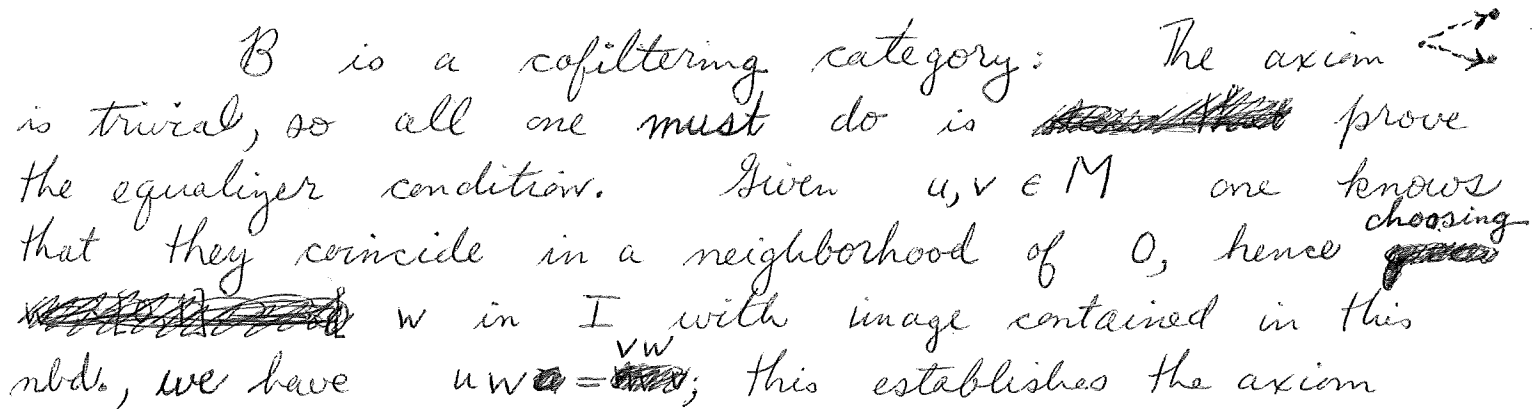 B is a cofiltering category: The axiom
is trivial, so all one must do is prove
the equalizer condition. Given u,v ∈ M one knows
that they coincide in a neighborhood of 0, hence choosing
w in I with image contained in this
nbd., we have uw = vw; this establishes the axiom